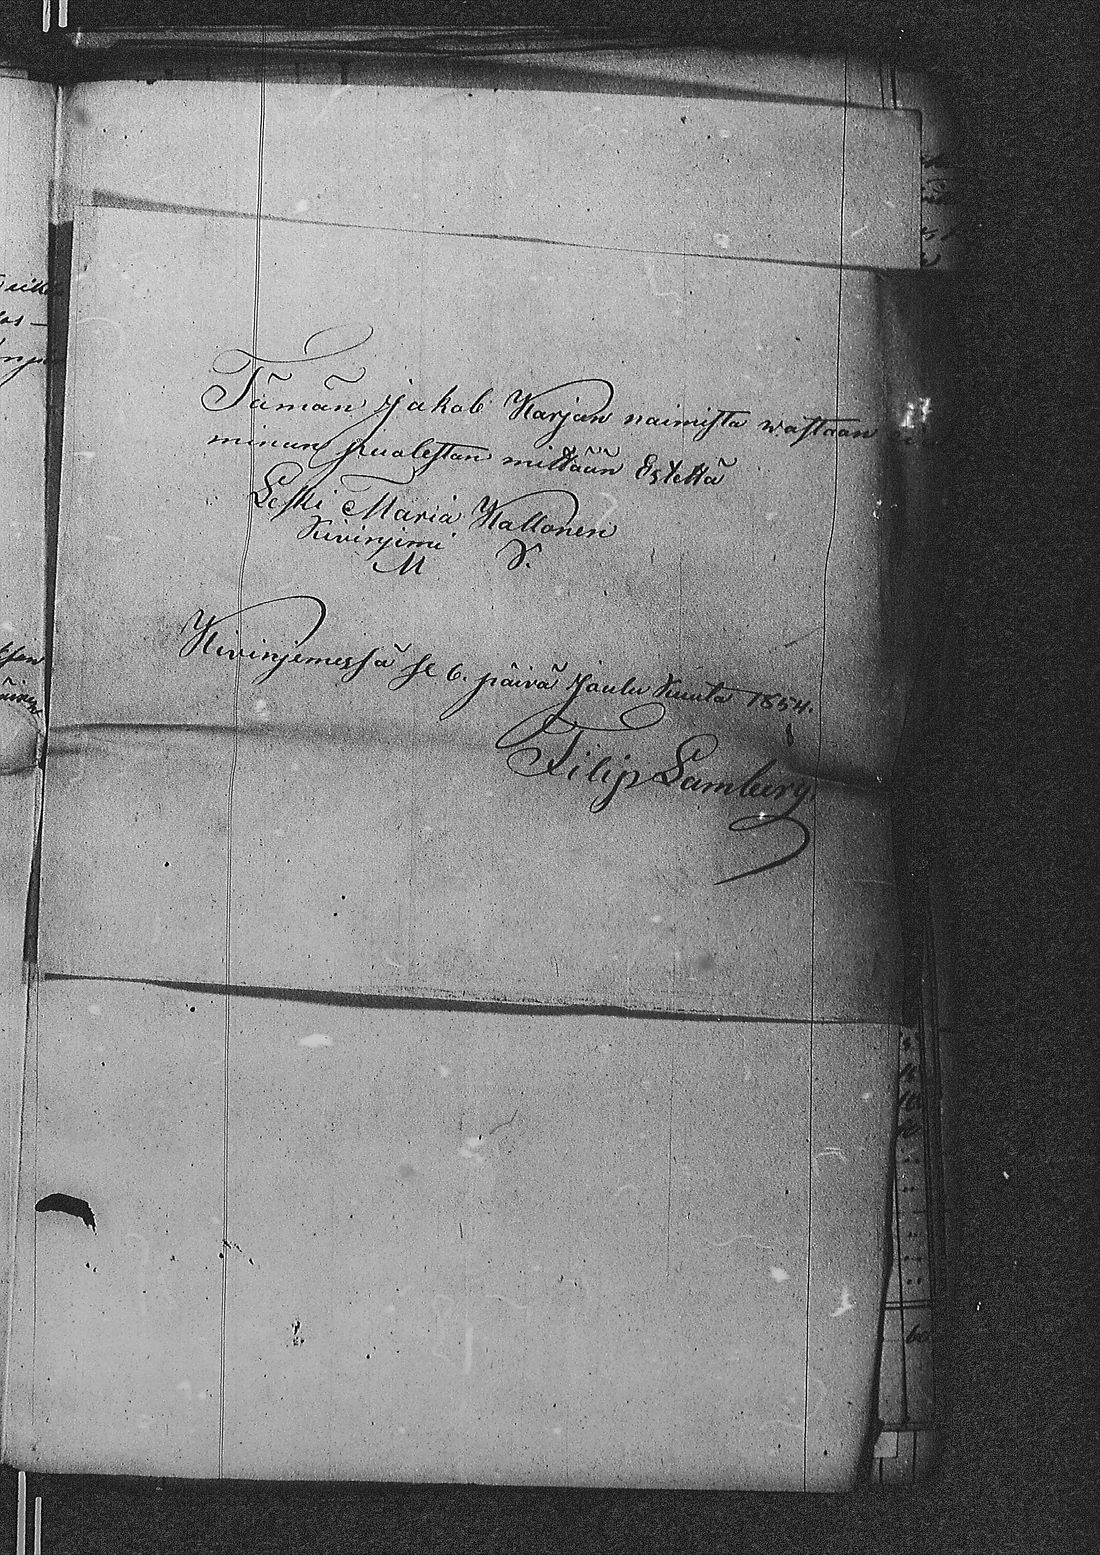 Tämän Jakob Karjan naimista wastaan ei
minun puolestan mittään Estettä
Leski Maria Kallonen
Kivinjemi
M K.
Kivinjemessä se 6. päivä Joulu Kuuta 1854.
Filip Lamberg